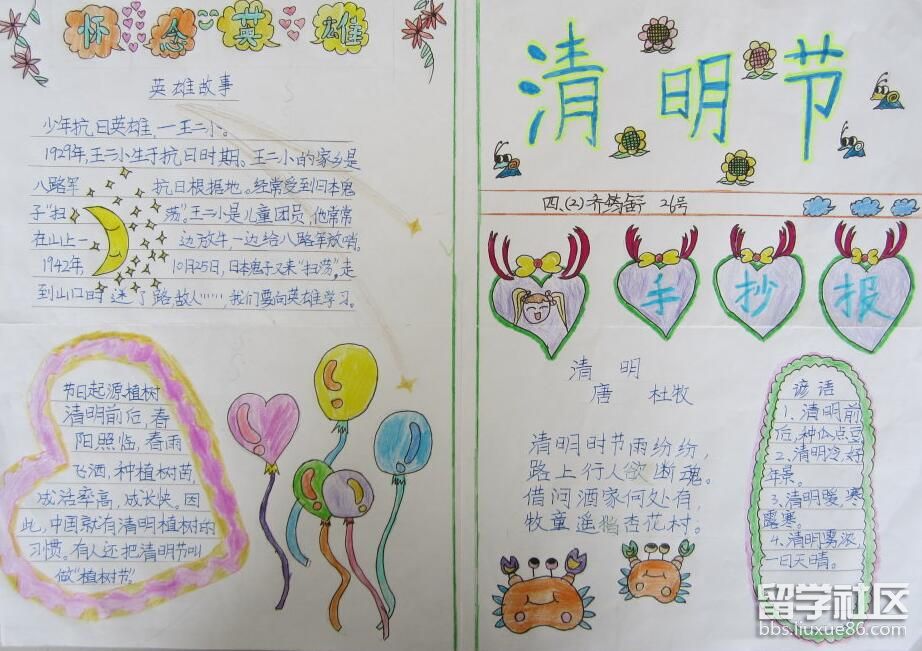 怀念英雄
英雄故事
少年抗日英雄,一王二小。
1929年,王二小生于抗日时期。王二小的家乡是
八路军 抗日根据地。经常受到日本鬼
子“扫 荡”。王二小是儿童团员,他常常
在山上一 边放牛,一边给八路军放哨。
1942年, 10月25日,日本鬼子又来“扫荡”,走
到山口时迷了路故人……,我们要向英雄学习。
节日起源.植树
清明前后,春
阳照临,春雨
飞洒,种植树苗,
成活率高,成长快。因
此,中国就有清明植树的
习惯。有人还把清明节叫
做“植树节”。
清明节
四、(2)齐 26号
手抄报
清明
唐 杜牧
清明时节雨纷纷,
路上行人欲断魂。
借问酒家何处有,
牧童遥指杏花村。
谚语
1、清明前
后,种瓜点豆
2、清明冷,好
年景。
3、清明暖,寒
露寒。
4、清明雾浓,
一日天晴。
留学社区
bbs.liuxue86.com